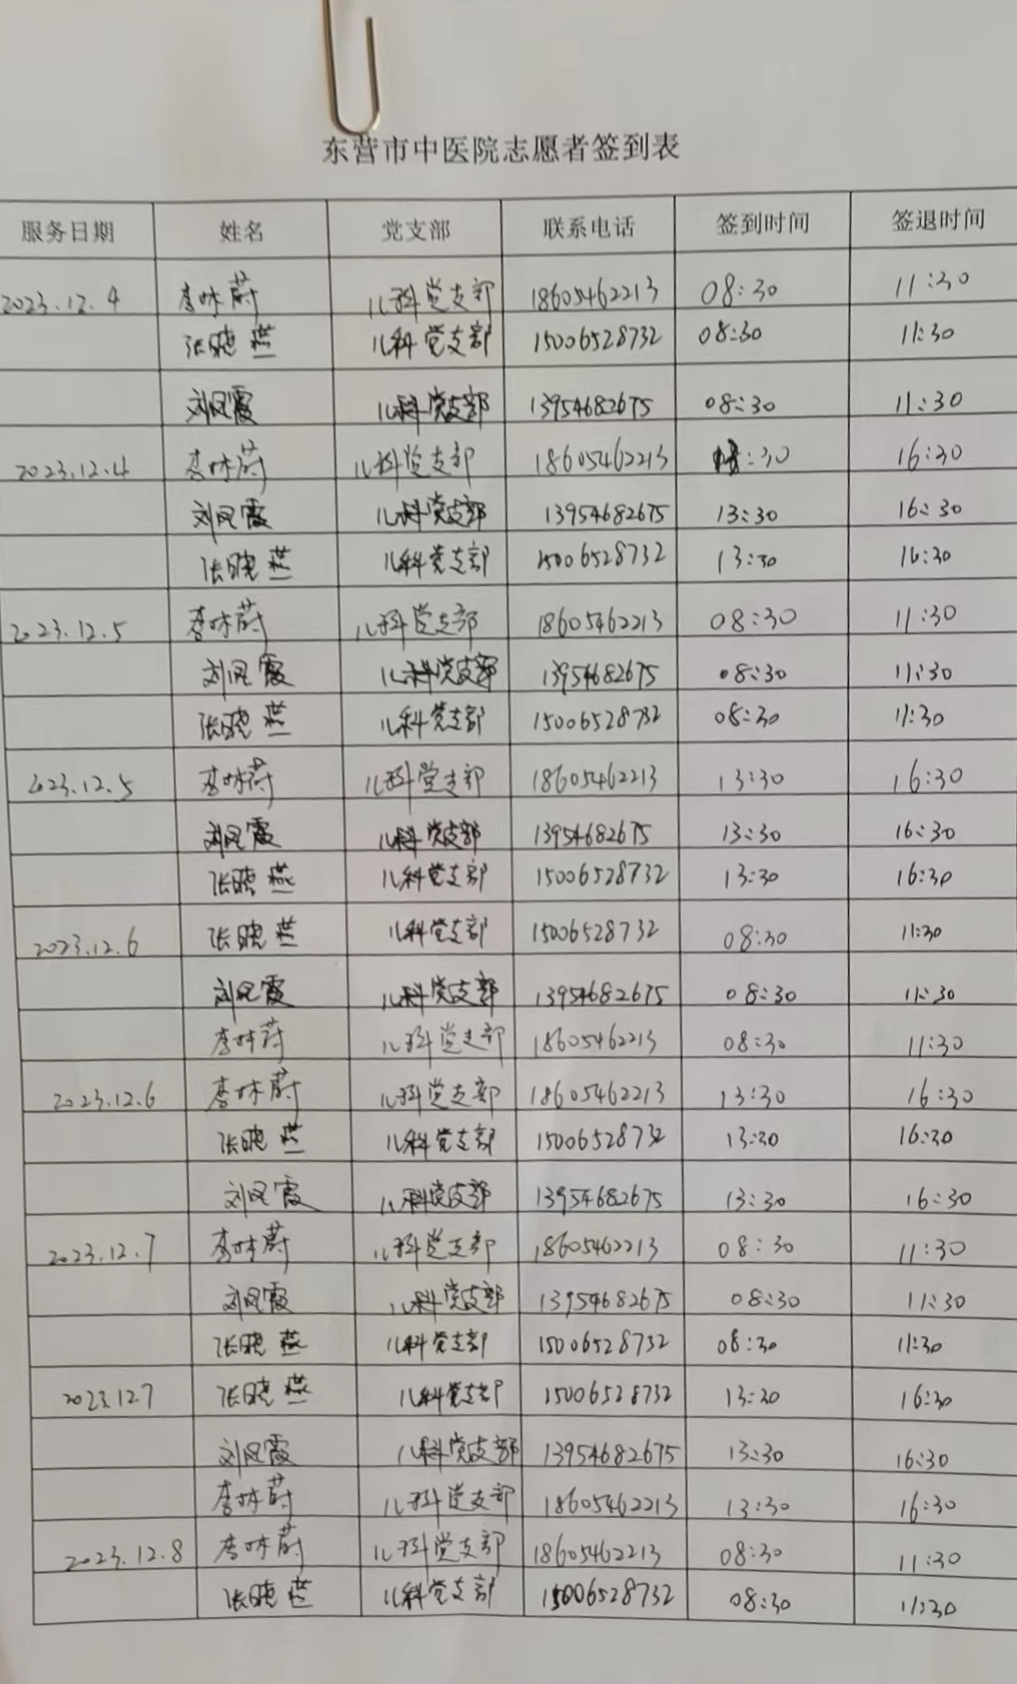 东营市中医院志愿者签到表
服务日期 姓名 党支部 联系电话 签到时间 签退时间
2023.12.4 李林蔚 儿科党支部 18605462213 08:30 11:30
张晓燕 儿科党支部 15006528732 08:30 11:30
刘凤霞 儿科党支部 13954682675 08:30 11:30
2023.12.4 李林蔚 儿科党支部 18605462213 :30 16:30
刘凤霞 儿科党支部 13954682675 13:30 16:30
张晓燕 儿科党支部 15006528732 13:30 16:30
2023.12.5 李林蔚 儿科党支部 18605462213 08:30 11:30
刘凤霞 儿科党支部 13954682675 08:30 11:30
张晓燕 儿科党支部 15006528732 08:30 11:30
2023.12.5 李林蔚 儿科党支部 18605462213 13:30 16:30
刘凤霞 儿科党支部 13954682675 13:30 16:30
张晓燕 儿科党支部 15006528732 13:30 16:30
2023.12.6 张晓燕 儿科党支部 15006528732 08:30 11:30
刘凤霞 儿科党支部 13954682675 08:30 11:30
李林蔚 儿科党支部 18605462213 08:30 11:30
2023.12.6 李林蔚 儿科党支部 18605462213 13:30 16:30
张晓燕 儿科党支部 15006528732 13:30 16:30
刘凤霞 儿科党支部 13954682675 13:30 16:30
2023.12.7 李林蔚 儿科党支部 18605462213 08:30 11:30
刘凤霞 儿科党支部 13954682675 08:30 11:30
张晓燕 儿科党支部 15006528732 08:30 11:30
2023.12.7 张晓燕 儿科党支部 15006528732 13:30 16:30
刘凤霞 儿科党支部 13954682675 13:30 16:30
李林蔚 儿科党支部 18605462213 13:30 16:30
2023.12.8 李林蔚 儿科党支部 18605462213 08:30 11:30
张晓燕 儿科党支部 15006528732 08:30 11:30